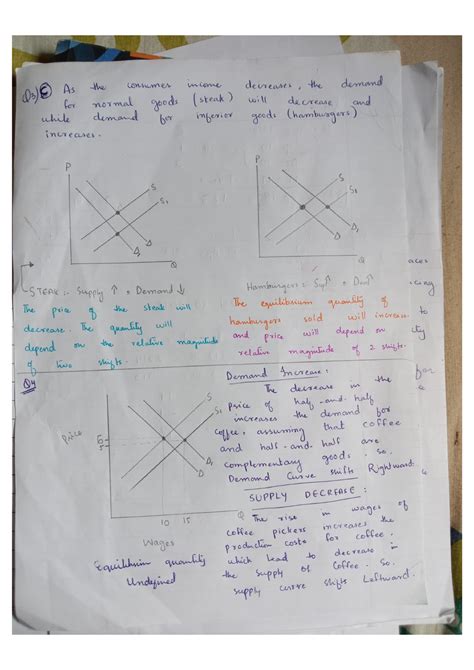 Q3) C As the consumer income decreases, the demand
for normal goods (steak) will decrease and
while demand for inferior goods (hamburgers)
increases.
P
S
S1
D
D1
Q
P
S
S1
D
D1
Q
STEAK :- Supply ↑ Demand ↓
The price of the steak will
decrease. The quantity will
depend on the relative magnitude
of two shifts.
Hamburgers :
The equilibrium quantity of
hamburgers sold will increase
and price will depend on
relative magnitude of 2 shifts.
Q4
Price
S
S1
D
D1
Q
10 15
Wages
Equilibrium quantity
Undefined
Demand Increase:
The decrease in the
price of half-and-half
increases the demand for
coffee, assuming that coffee
and half-and-half are
complementary goods. So.
Demand Curve shifts Rightward.
SUPPLY DECREASE :
The rise in wages of
coffee pickers increases the
production costs for coffee.
which lead to decrease in
the supply of Coffee. So.
supply curve shifts Leftward.